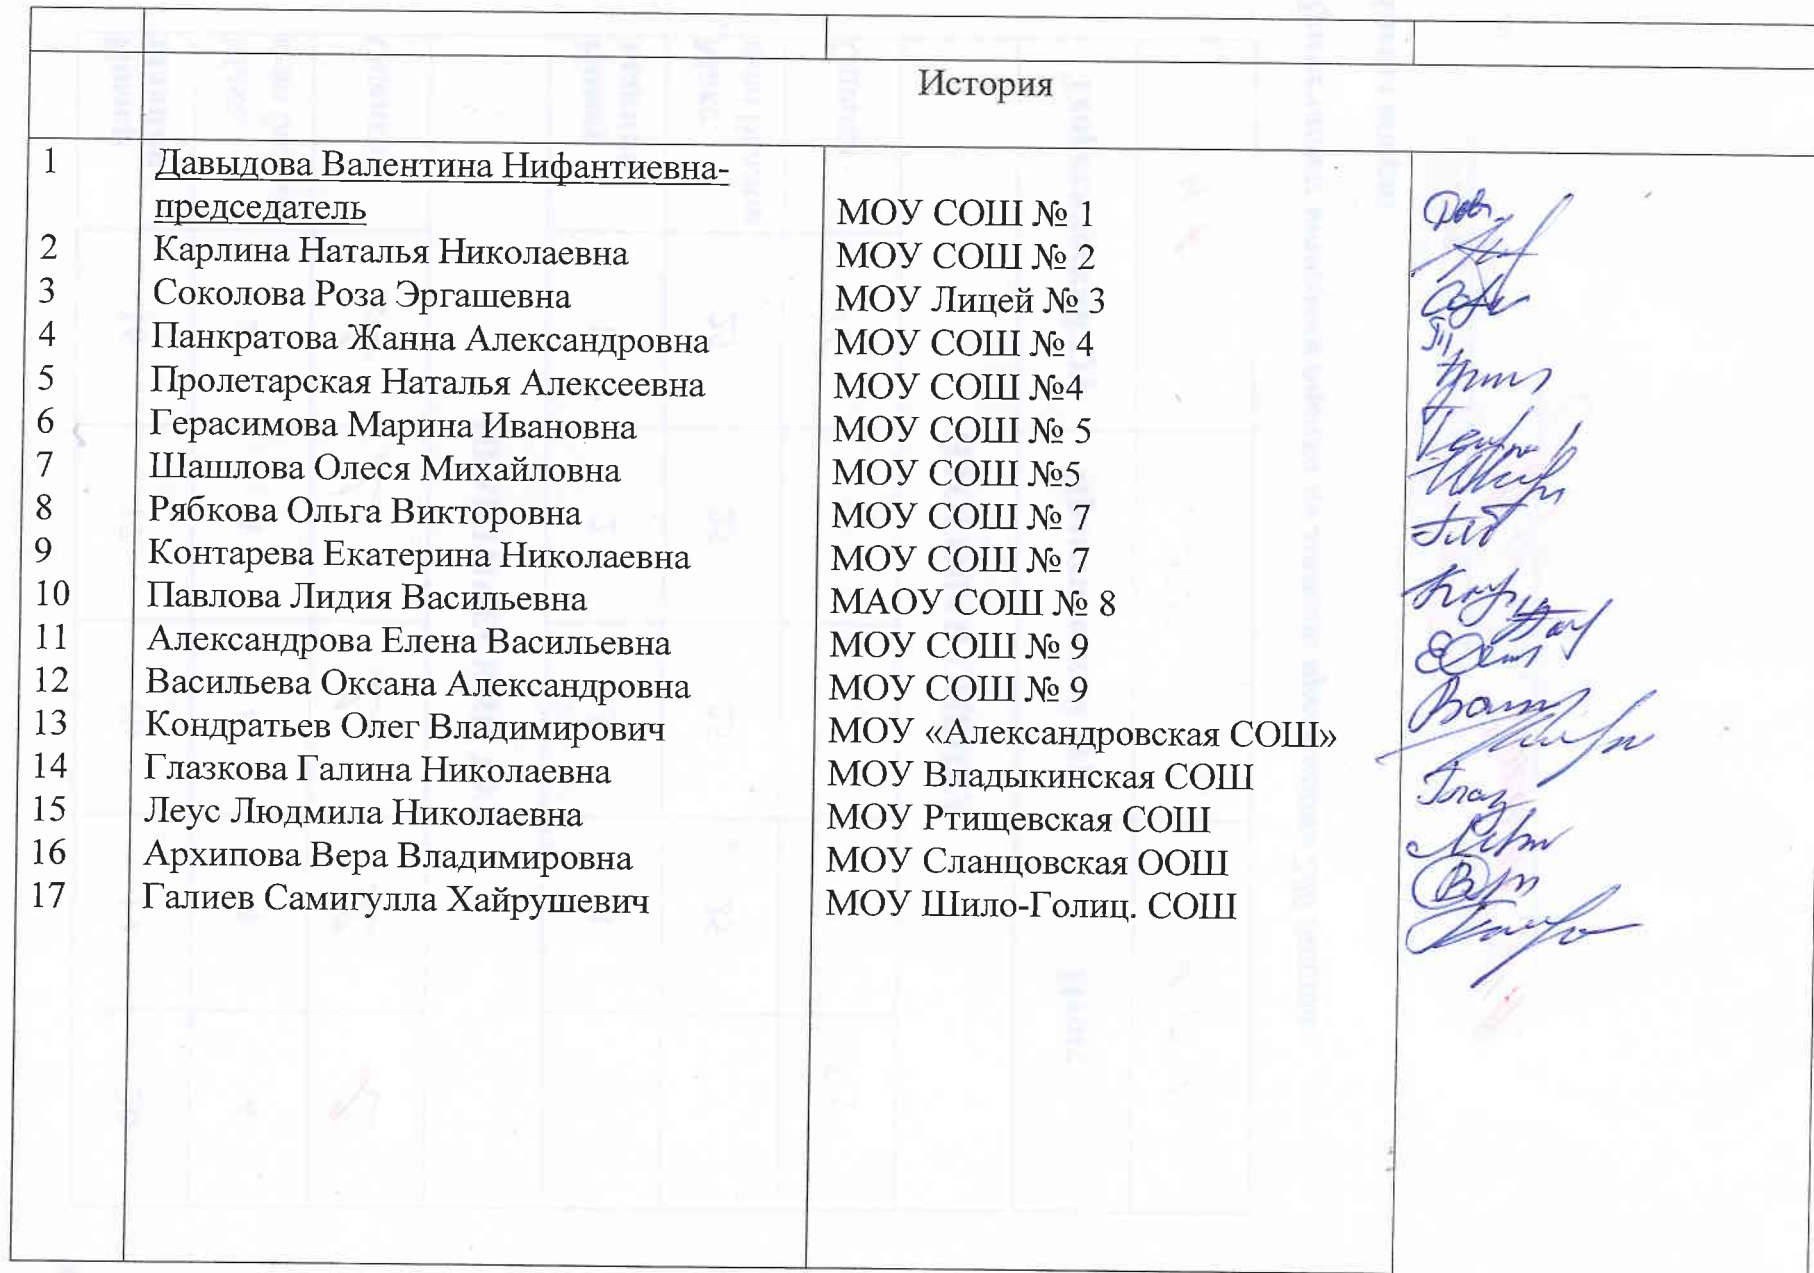 История
1 Давыдова Валентина Нифантиевна-
председатель МОУ СОШ № 1
2 Карлина Наталья Николаевна МОУ СОШ № 2
3 Соколова Роза Эргашевна МОУ Лицей № 3
4 Панкратова Жанна Александровна МОУ СОШ № 4
5 Пролетарская Наталья Алексеевна МОУ СОШ №4
6 Герасимова Марина Ивановна МОУ СОШ № 5
7 Шашлова Олеся Михайловна МОУ СОШ №5
8 Рябкова Ольга Викторовна МОУ СОШ № 7
9 Контарева Екатерина Николаевна МОУ СОШ № 7
10 Павлова Лидия Васильевна МАОУ СОШ № 8
11 Александрова Елена Васильевна МОУ СОШ № 9
12 Васильева Оксана Александровна МОУ СОШ № 9
13 Кондратьев Олег Владимирович МОУ «Александровская СОШ»
14 Глазкова Галина Николаевна МОУ Владыкинская СОШ
15 Леус Людмила Николаевна МОУ Ртищевская СОШ
16 Архипова Вера Владимировна МОУ Сланцовская ООШ
17 Галиев Самигулла Хайрушевич МОУ Шило-Голиц. СОШ